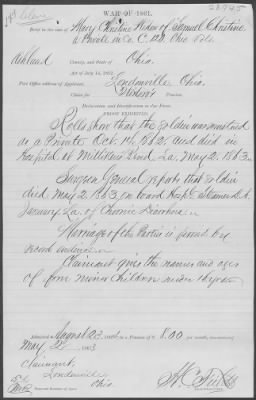 WAR OF 1861.
Brief in the case of Mary Christine Widow of Samuel Christine
a Private in Co. C. 120 Ohio Vols.
Ashland County, and State of Ohio.
Act of July 14, 1862.
Post Office address of Applicant, Loudonville, Ohio.
Widow's Pension.
Declaration and Identification in due Form.
PROOF EXHIBITED.
Rolls show that the Soldier was mustered
as a Private Oct. 14, 1862 and died in
Hospital at Millikens Bend La, May 2, 1863.
Surgeon General reports that Soldier
died May 2, 1863, on board Hosp.
January, La, of Chronic Diarrhoea
Marriage of the Parties is proved by
record evidence
Claimant gives the names and ages
of four minor children under 16 years
Admitted August 23, to a Pension of $ 8.00 per month, commencing
May 2nd 1863
Claimant,
Loudonville
Ohio.